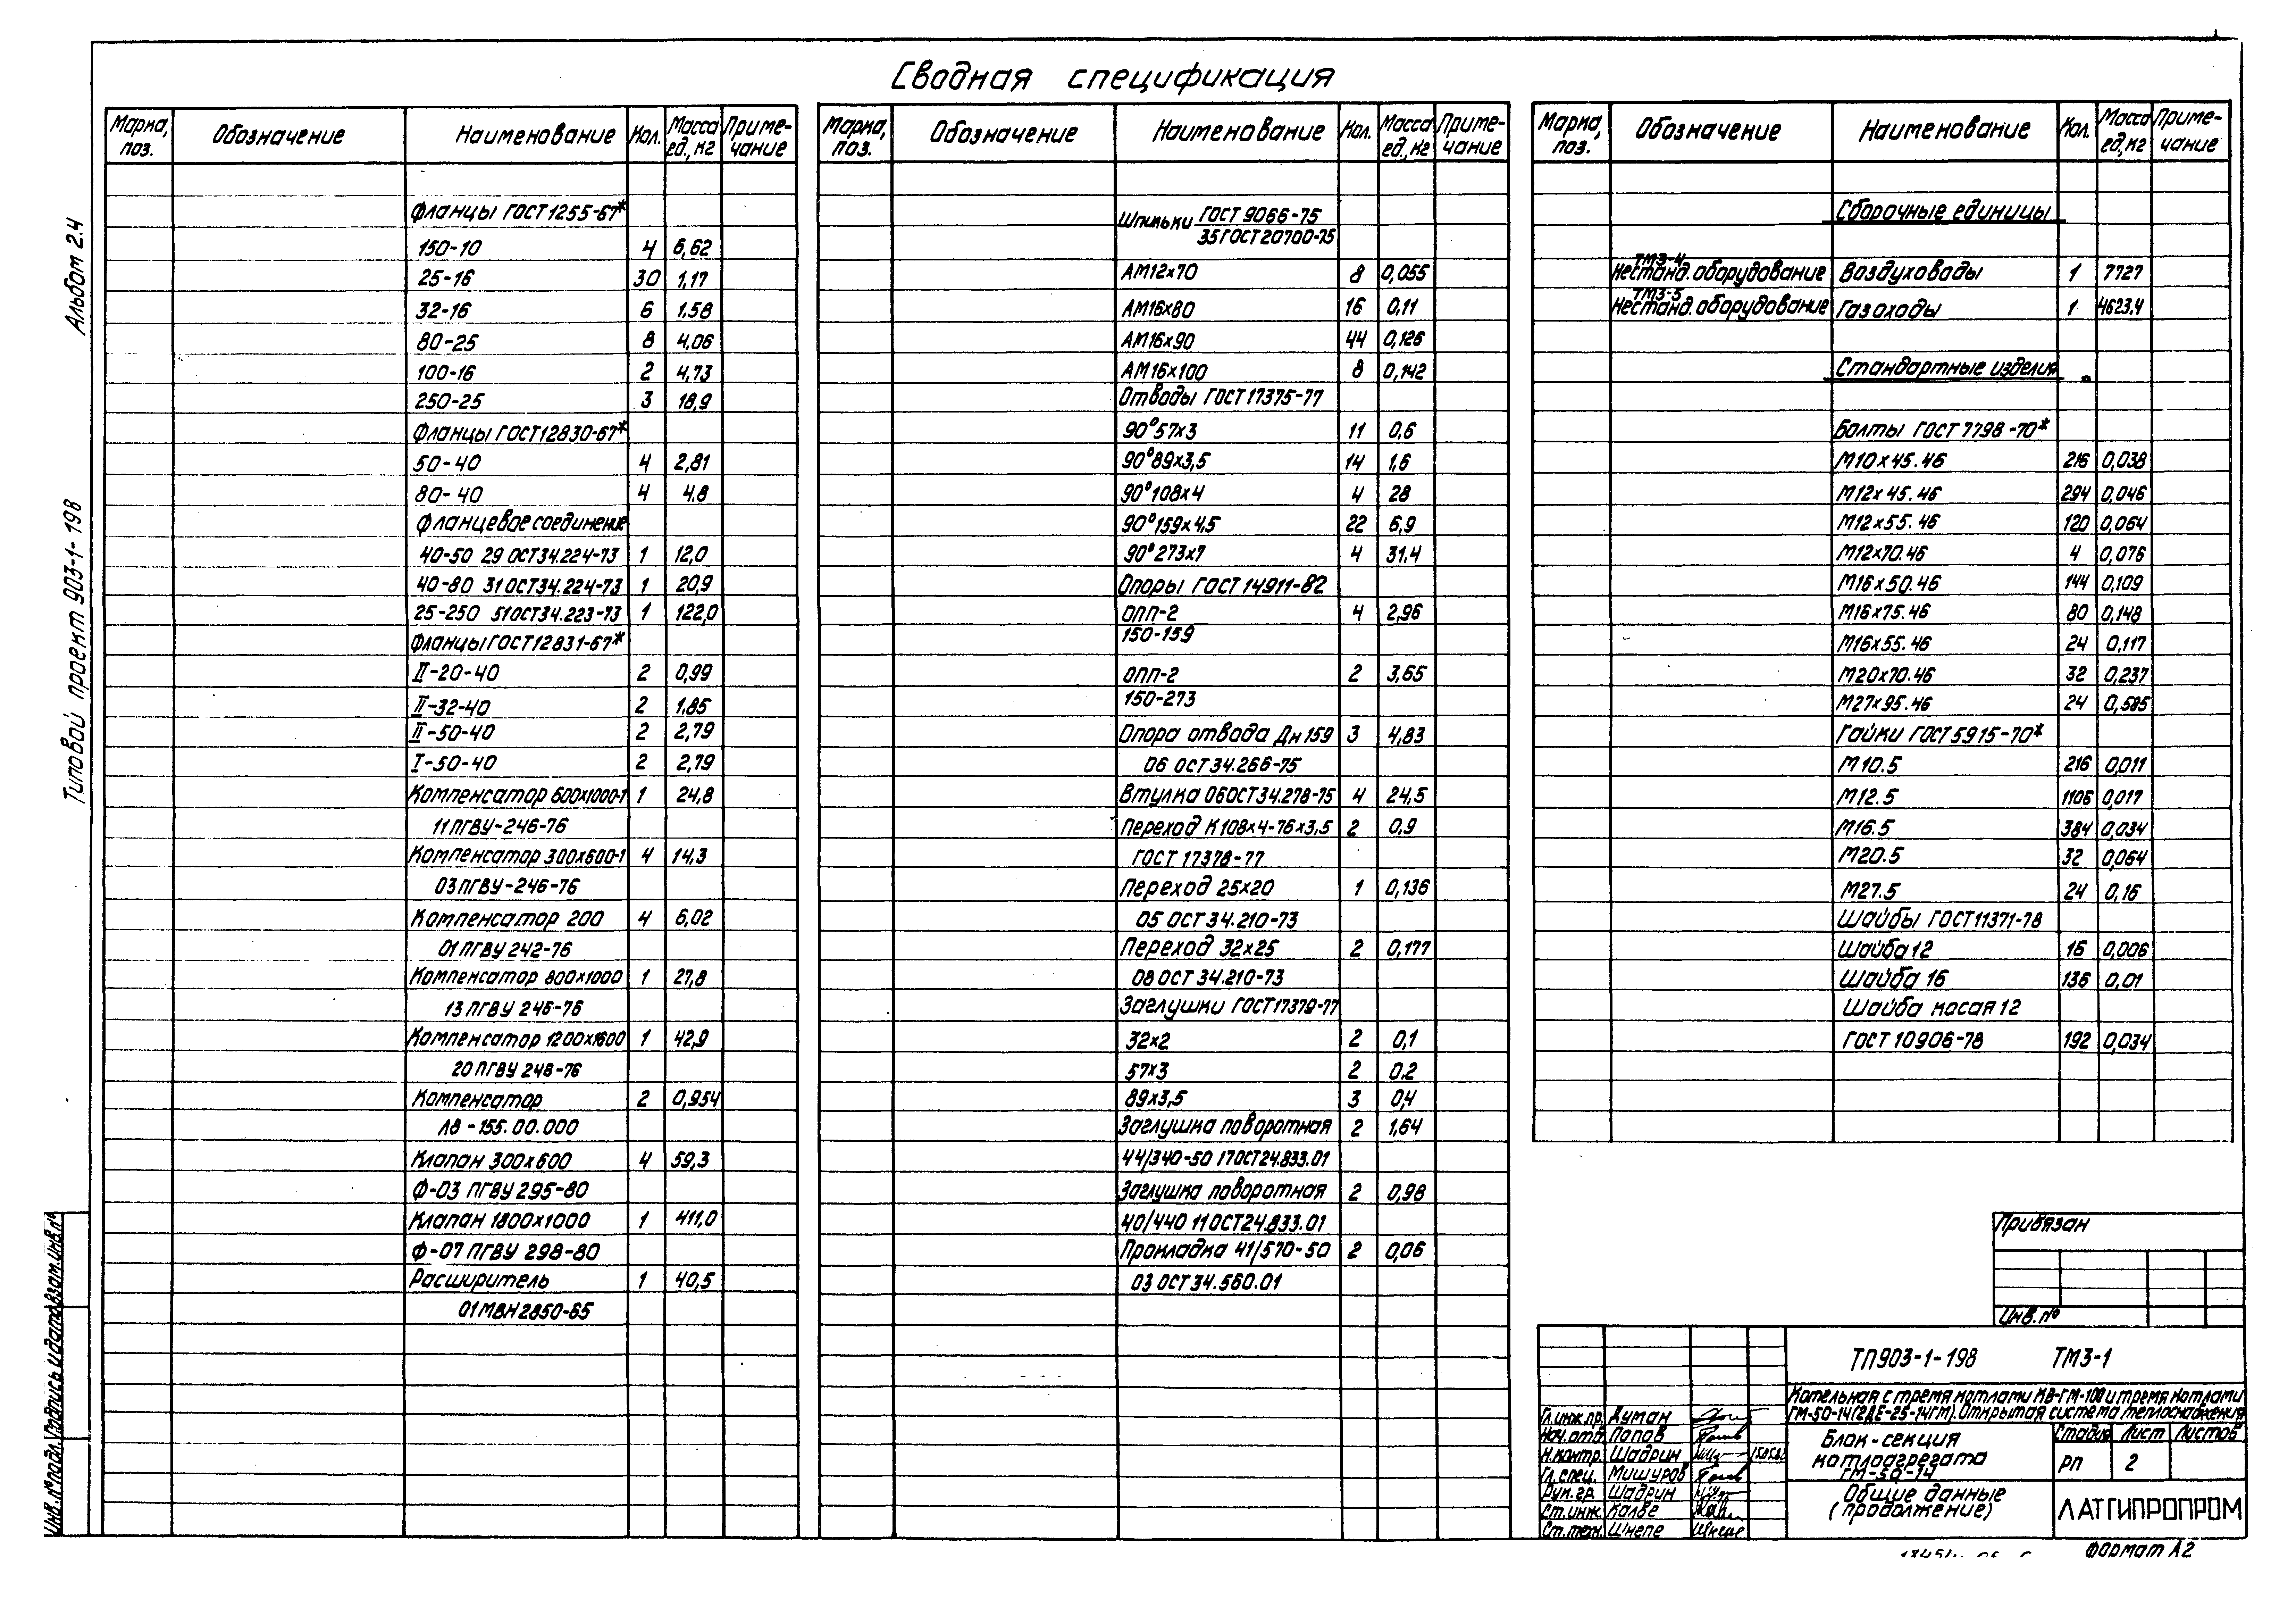 Сводная спецификация
Альбом 2.4
Типовой проект 903-1-198
Марка, поз. Обозначение Наименование Кол. Масса ед., кг Примечание
Фланцы ГОСТ 1255-67*
150-10 4 6,62
25-16 30 1,17
32-16 6 1.58
80-25 8 4,06
100-16 2 4,73
250-25 3 18,9
Фланцы ГОСТ 12830-67*
50-40 4 2,81
80-40 4 4.8
Фланцевое соединение
40-50 29 ОСТ34.224-73 1 12,0
40-80 31 ОСТ34.224-73 1 20,9
25-250 51 ОСТ34.223-73 1 122,0
Фланцы ГОСТ 12831-67*
II-20-40 2 0,99
II-32-40 2 1.85
II-50-40 2 2,79
I-50-40 2 2,79
Компенсатор 600х1000-1 1 24,8
11 ПГВУ-246-76
Компенсатор 300х600-1 4 14,3
03 ПГВУ-246-76
Компенсатор 200 4 6,02
01 ПГВУ 242-76
Компенсатор 800х1000 1 27,8
13 ПГВУ 246-76
Компенсатор 1200х1600 1 42,9
20 ПГВУ 248-76
Компенсатор 2 0,954
Л8-155.00.000
Клапан 300х600 4 59,3
Ф-03 ПГВУ 295-80
Клапан 1800х1000 1 411,0
Ф-07 ПГВУ 298-80
Расширитель 1 40,5
01 МВН 2850-65
Марка, поз. Обозначение Наименование Кол. Масса ед., кг Примечание
Шпильки ГОСТ 9066-75
35 ГОСТ 20700-75
АМ12х70 8 0,055
АМ16х80 16 0,11
АМ16х90 44 0,126
АМ16х100 8 0,142
Отводы ГОСТ 17375-77
90°57х3 11 0,6
90°89х3,5 14 1,6
90°108х4 4 28
90°159х4,5 22 6,9
90°273х7 4 31.4
Опоры ГОСТ 14911-82
ОПП-2 4 2,96
150-159
ОПП-2 2 3,65
150-273
Опора отвода Дн 159 3 4,83
06 ОСТ 34.266-75
Втулка 06 ОСТ34.278-75 4 24,5
Переход К108х4-76х3,5 2 0,9
ГОСТ 17378-77
Переход 25х20 1 0,136
05 ОСТ 34.210-73
Переход 32х25 2 0,177
08 ОСТ 34.210-73
Заглушки ГОСТ 17379-77
32х2 2 0,1
57х3 2 0.2
89х3,5 3 0,4
Заглушка поворотная 2 1,64
44/340-50 17 ОСТ24.833.01
Заглушка поворотная 2 0,98
40/440 11 ОСТ24.833.01
Прокладка 41/570-50 2 0,06
03 ОСТ 34.560.01
Марка, поз. Обозначение Наименование Кол. Масса ед, кг Примечание
Сборочные единицы
ТМ3-4
Нестанд. оборудование Воздуховоды 1 7727
ТМ3-5
Нестанд. оборудование Газоходы 1 4623.4
Стандартные изделия
Болты ГОСТ 7798-70*
М10х45.46 216 0,038
М12х45.46 294 0,046
М12х55.46 120 0,064
М12х70.46 4 0,076
М16х50.46 144 0,109
М16х75.46 80 0,148
М16х55.46 24 0,117
М20х70.46 32 0,237
М27х95.46 24 0,585
Гайки ГОСТ 5915-70*
М10.5 216 0,011
М12.5 1106 0,017
М16.5 384 0,034
М20.5 32 0,064
М27.5 24 0,16
Шайбы ГОСТ 11371-78
Шайба 12 16 0,006
Шайба 16 136 0,01
Шайба косая 12
ГОСТ 10906-78 192 0,034
Привязан
Инв. №
ТП903-1-198 ТМ3-1
Котельная с тремя котлами КВ-ГМ-100 и тремя котлами
ГМ-50-14 (2ДЕ-25-14ГМ). Открытая система теплоснабжения
Гл. инж. пр. Думан
Нач. отд. Попов
Н. контр. Шадрин
Гл. спец. Мишуров
Рук. гр. Шадрин
Ст. инж. Калве
Ст. тех. Шнепе
Блок-секция
котлоагрегата
ГМ-50-14
Стадия Лист Листов
РП 2
Общие данные
(продолжение)
ЛАТГИПРОПРОМ
Формат А2
Инв. № подл. Подпись и дата Взам. инв. №